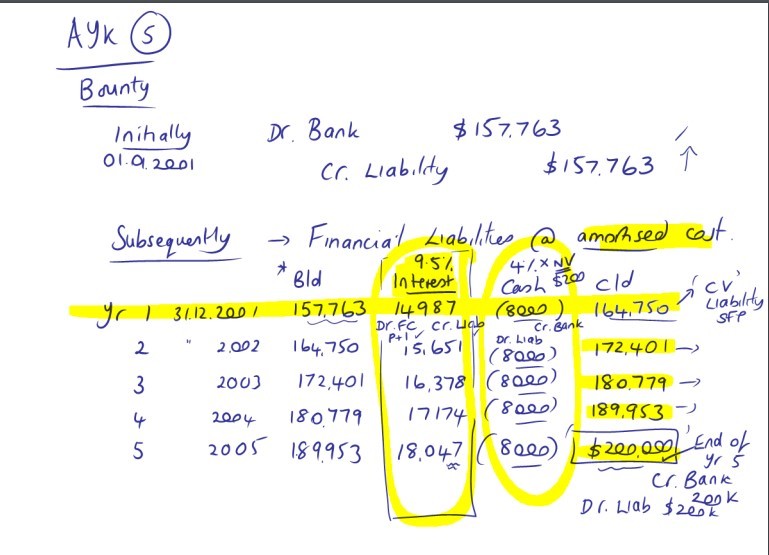 AYK 5
Bounty
Initially Dr. Bank $157,763
01.01.2001 Cr. Liability $157,763 ↑
Subsequently → Financial Liabilities @ amortised cost.
9.5% 4% x NV
* Bld Interest Cash $200 Cld
Yr 1 31.12.2001 157,763 14987 (8000) 164,750 CV Liability SFP
Dr. FC Cr. Liab Cr. Bank
P+L Dr. Liab
2 " 2002 164,750 15,651 (8000) 172,401 →
3 2003 172,401 16,378 (8000) 180,779 →
4 2004 180,779 17174 (8000) 189,953 →
5 2005 189,953 18,047 (8000) $200,000 End of yr 5
Cr. Bank 200k
Dr. Liab $200k